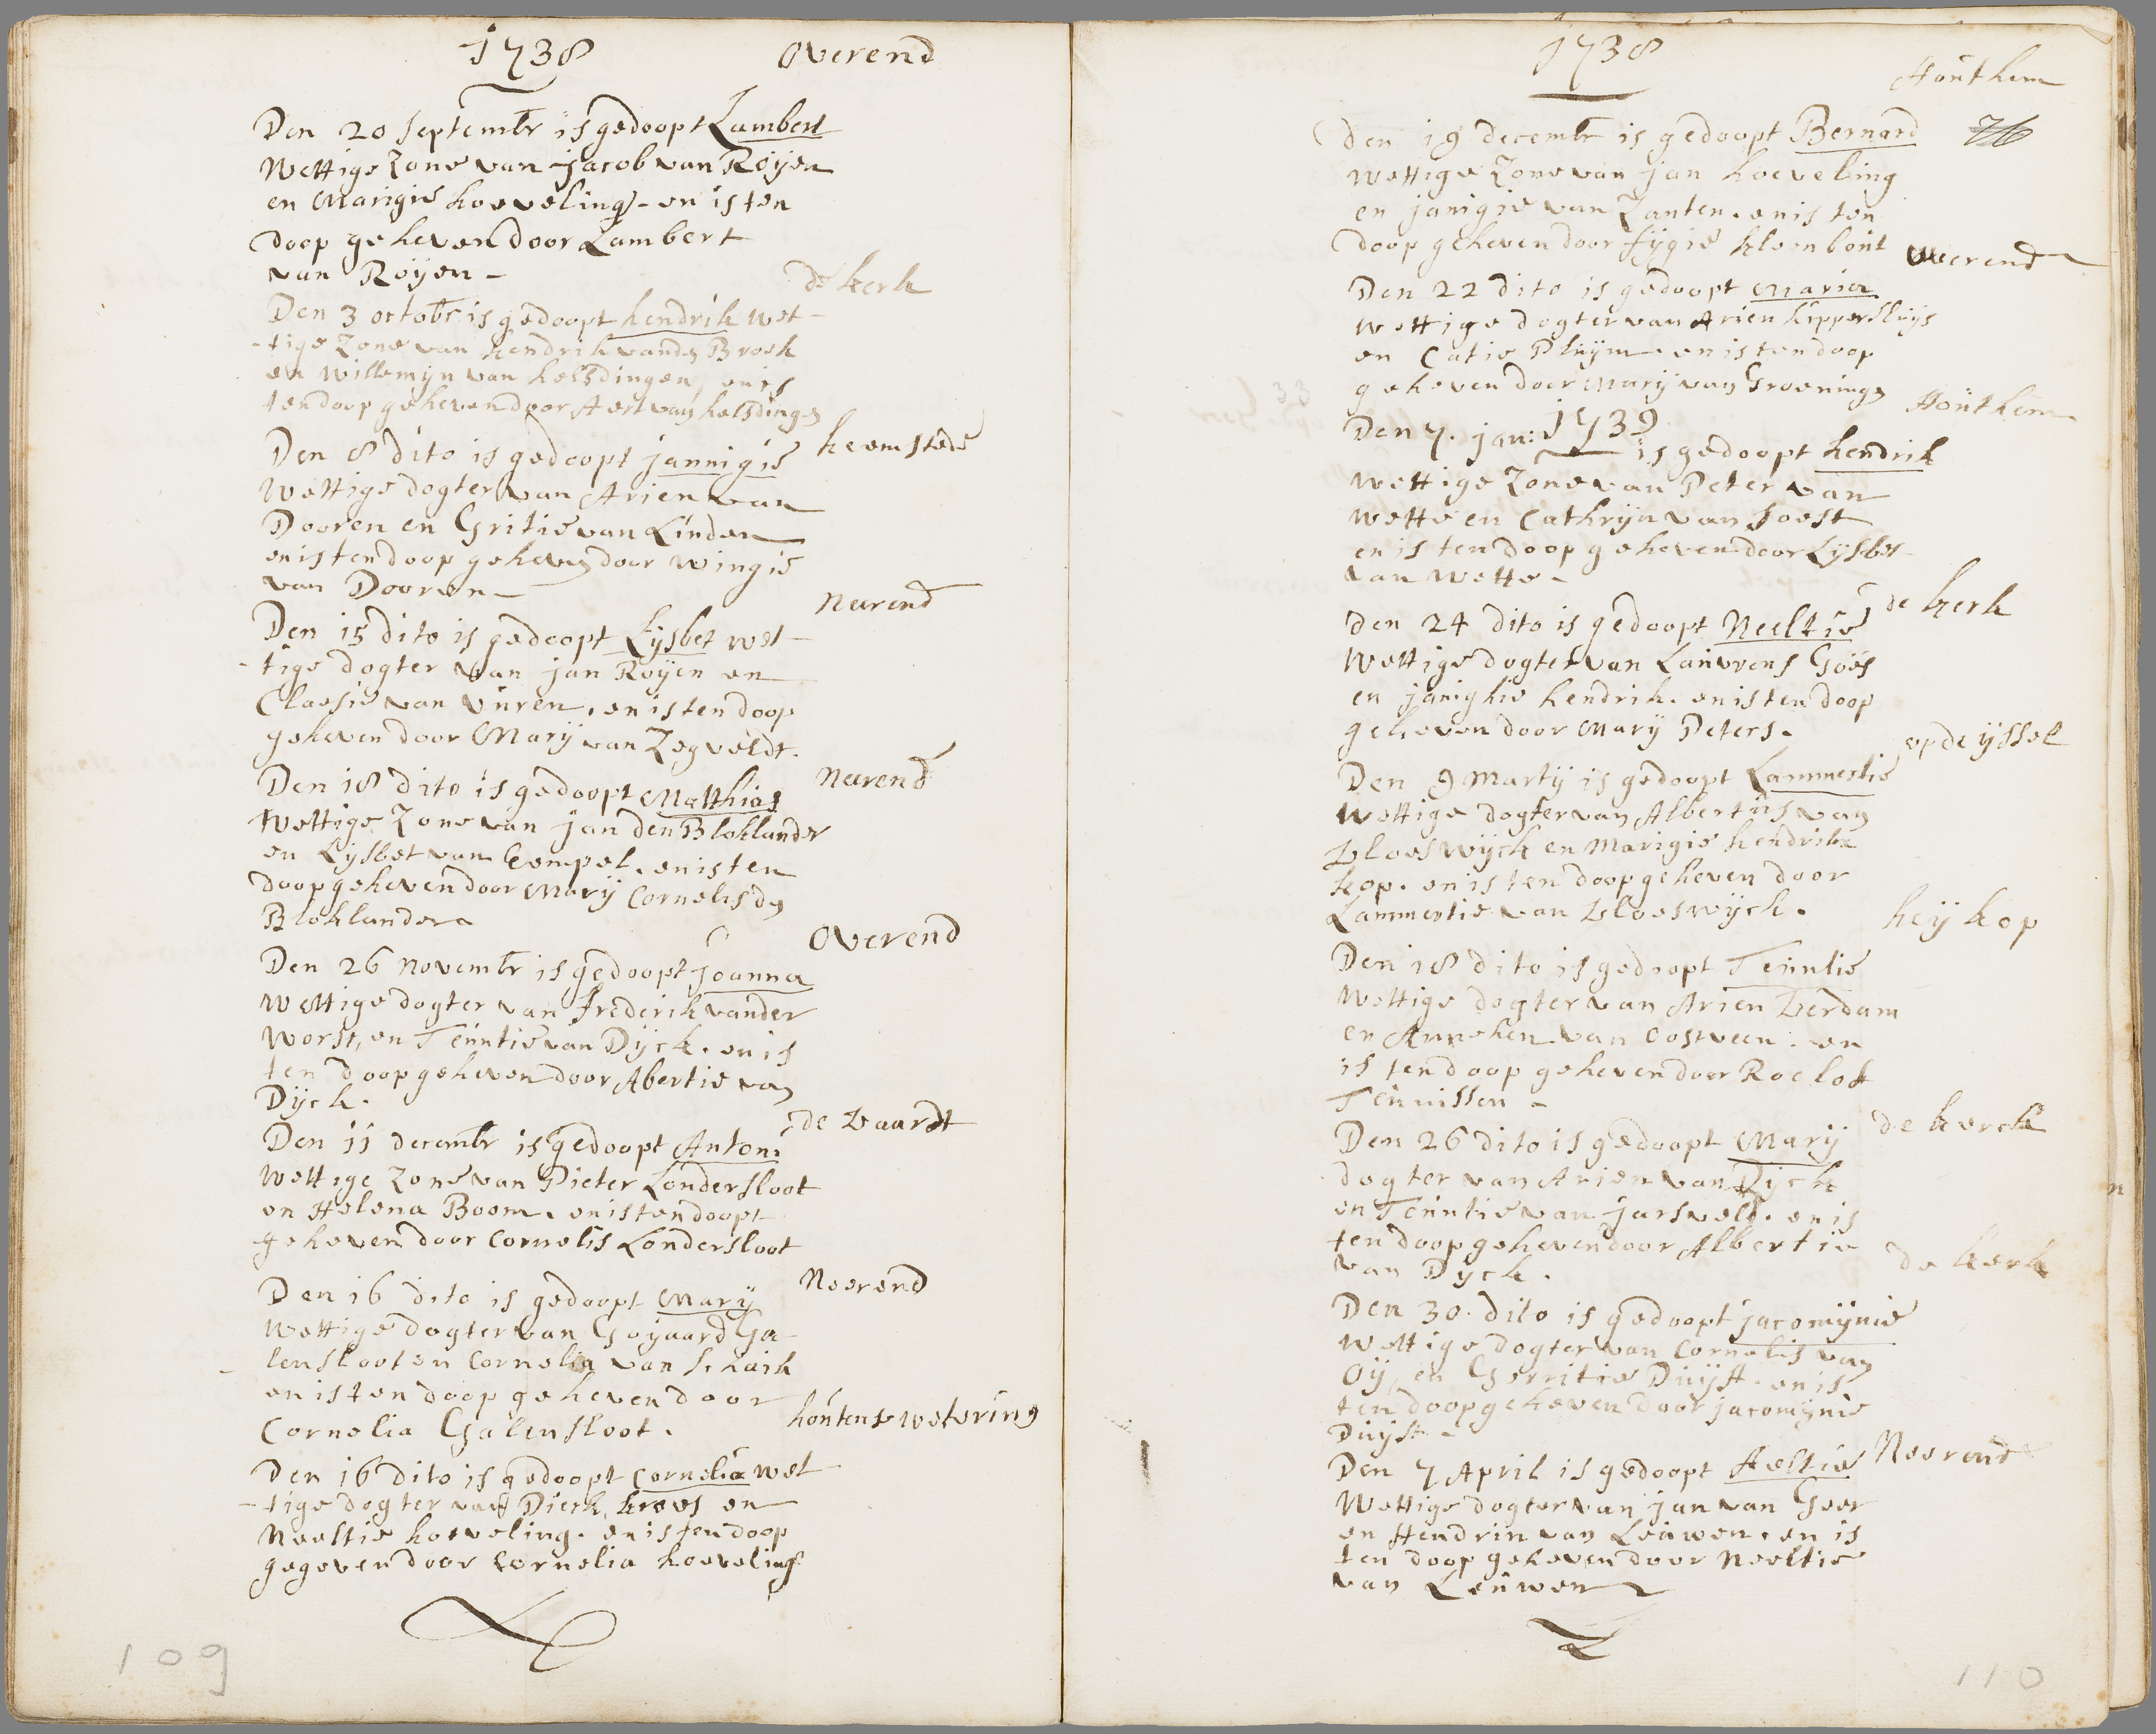 1738
Overend
Den 20 septembr is gedoopt Lambert
Wettige Zone van jacob van Roijen
en Marigie hoeveling - en is ten
doop geheven door Lambert
van Roijen -
de kerk
Den 3 octobr is gedoopt hendrik wet-
-tige Zone van hendrik vanden Broek
en willemijn van helsdingen, en is
ten doop geheven door Aert van helsdingen
heemstede
Den 8 dito is gedoopt jannigie
Wettige dogter van Arien van
Dooren en Gritie van Linden
en is ten doop geheven door wingie
van Dooren -
Neerend
Den 15 dito is gedoopt Lijsbet wet-
-tige dogter van jan Roijen en
Claesie van Vuren, en is ten doop
geheven door Marij van Zegveldt.
Neerend
Den 18 dito is gedoopt Matthias
Wettige Zone van jan den Bloklander
en Lijsbet van Eempel. en is ten
doop geheven door Marij Cornelis den
Bloklander
Overend
Den 26 Novembr is gedoopt joanna
Wettige dogter van frederik vander
Worst, en Teuntie van Dijck. en is
ten doop geheven door Abertie van
Dijck.
de vaardt
Den 11 decembr is gedoopt Antoni
Wettige Zone van Pieter Londersloot
en Helena Boom. en is ten doopt
geheven door Cornelis Londersloot
Neerend
Den 16 dito is gedoopt Marij
Wettige dogter van Goijaard Ga-
lensloot en Cornelia van Schaik
en is ten doop geheven door
Cornelia Galensloot.
houtense wetering
Den 16 dito is gedoopt Cornelia wet-
-tige dogter van Dierk kroes en
Neeltie hoeveling. en is ten doop
gegeven door Cornelia hoeveling
109
1738
Houthem
76
den 19 decembr is gedoopt Bernard
Wettige Zone van jan hoeveling
en janigie van Zanten. en is ten
doop geheven door fijgie kleenbout
overend
Den 22 dito is gedoopt Maria
wettige dogter van Arien kippersluijs
en Catie Pluijm. en is ten doop
geheven door Marij van Groeningen
Houthem
Den 7. jan: 1739 is gedoopt hendrik
Wettige Zone van Peter van
Wette en Cathrijn van Soest
en is ten doop geheven door Lijsbet
van Wette -
de kerk
Den 24 dito is gedoopt Neeltie
Wettige dogter van Lauwrens Goes
en janighie hendrik. en is ten doop
geheven door Marij Peters.
op de ijssel
Den 9 Martij is gedoopt Lammertie
Wettige dogter van Albertus van
vloeswijck en Marigie hendrik
kop. en is ten doop geheven door
Lammertie van vloeswijck.
heijkop
Den 18 dito is gedoopt Teuntie
Wettige dogter van Arien verdam
en Anneken van Oostveen. en
is ten doop geheven door Roelof
Teunissen -
de kerck
Den 26 dito is gedoopt Marij
dogter van Arien van Dijck
en Teuntie van jarsveld. en is
ten doop geheven door Albertie
van Dijck.
de kerk
Den 30. dito is gedoopt jacomijnie
wettige dogter van Cornelis van
Oij, en Gerritie Duijst. en is
ten doop geheven door jacomijnie
Duijst -
Neerend
Den 7 April is gedoopt Aeltie
Wettige dogter van jan van Geer
en Hendrin van Leuwen. en is
ten doop geheven door Neeltie
van Leuwen
110